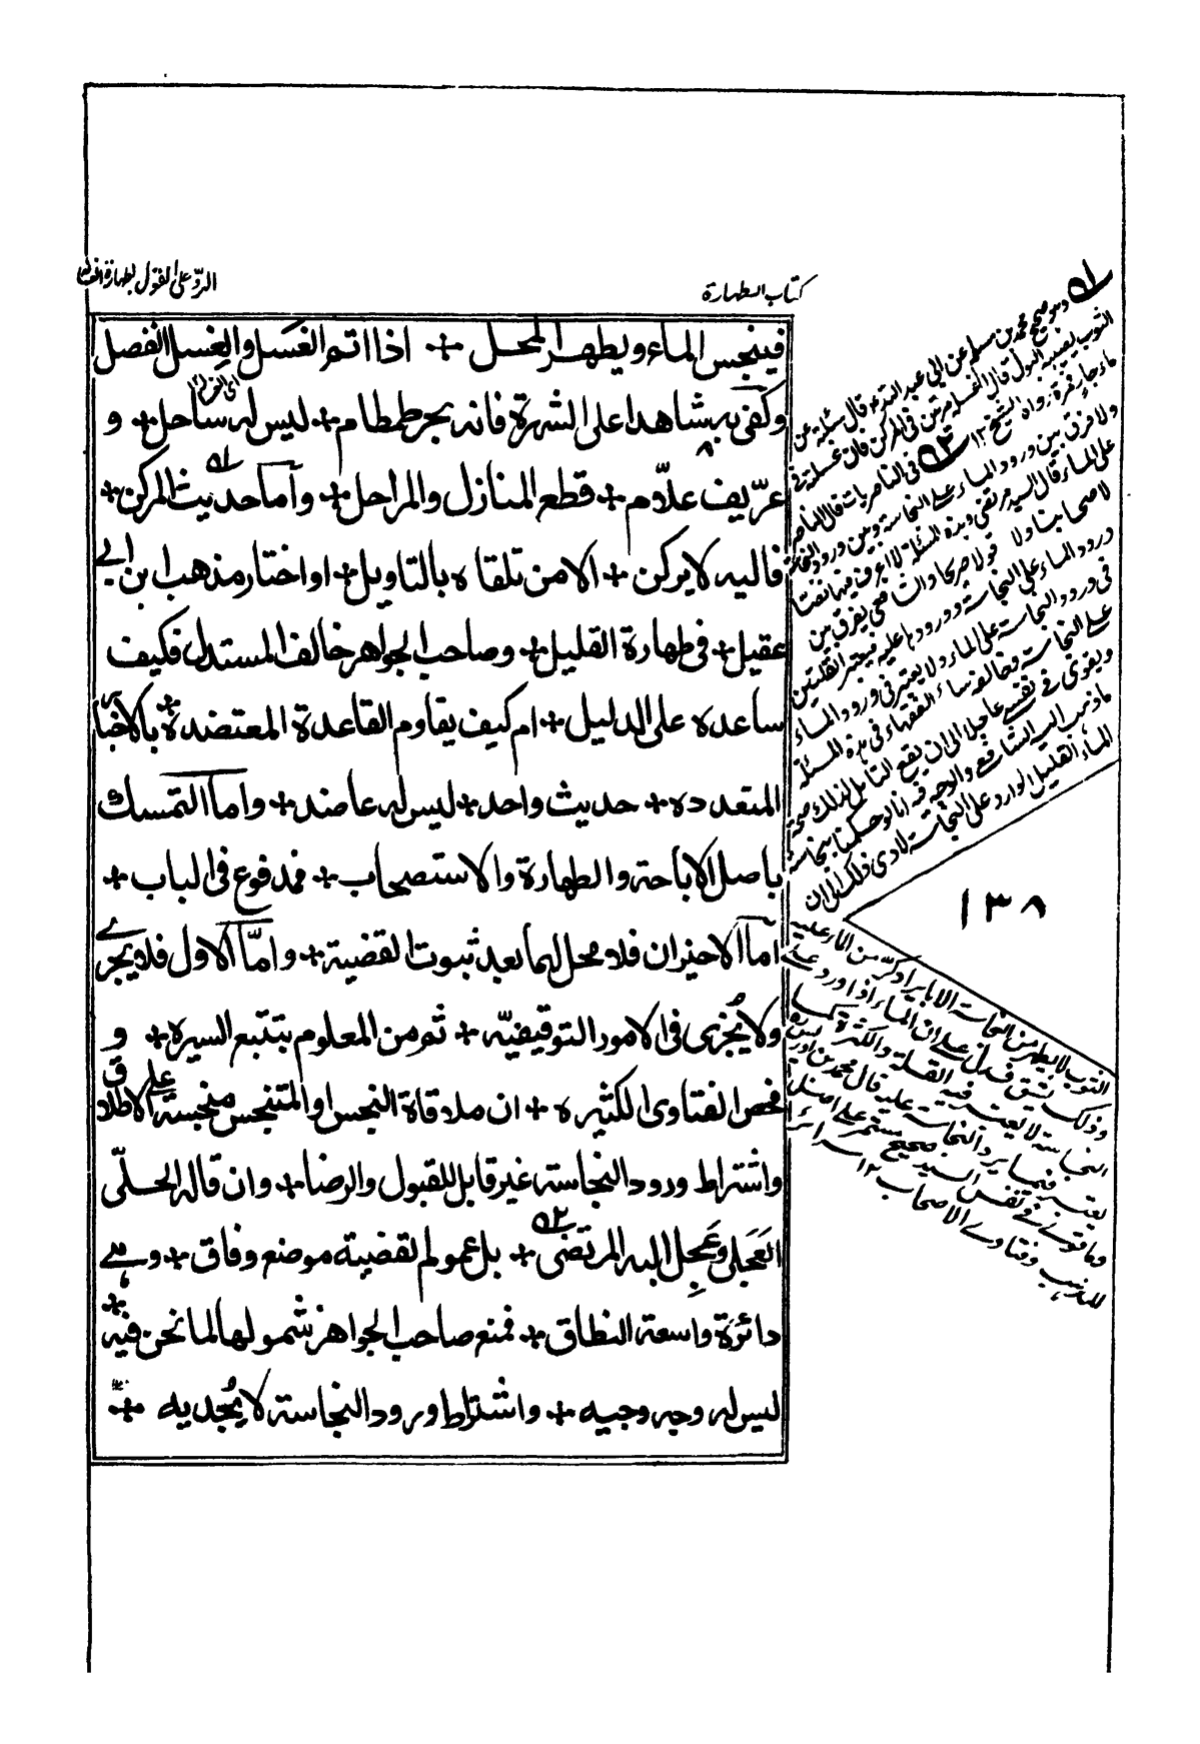 كتاب الطهارة
الردّ على القول بطهارة الغسالة
فينجس الماء ويطهر المحل + اذا اتم الغَسل والغِسل انفصل
وكفى به شاهدا على الشهرة فانه بحر طمطام + ليس له ساحل + و
عرّيف علّام + قطع المنازل والمراحل + وآما حديث المركن +
فاليه لا يركن + الا من تلقاه بالتاويل + او اختار مذهب ابن ابي
عقيل + في طهارة القليل + وصاحب الجواهر خالف المستدل فكيف
ساعده على الدليل + ام كيف يقاوم القاعدة المعتضدة بالاخبار
المتعدده + حديث واحد + ليس له عاضد + واما التمسك
باصل الاباحة والطهارة والاستصحاب + فمدفوع في الباب +
آما الاخيران فلا محل لهما بعد ثبوت القضية + وامّا الاول فلا يجري
ولا يُجزى في الامور التوقيفيّه + ثم من المعلوم بتتبع السيرة + و
فحص الفتاوى الكثيره + ان ملاقاة النجس او المتنجس منجسة على الاطلاق
واشتراط ورود النجاسة غير قابل للقبول والرضا + وان قاله الحلّى
العَجَلى وعَجِل اليه المرتضى + بل عموم القضية موضع وفاق + وهي
دائرة واسعة النطاق + فمنع صاحب الجواهر شمولها لما نحن فيه +
ليس له وجه وجيه + واشتراط ورود النجاسة لا يُجديه +
وهو صحيح محمد بن مسلم عن ابي عبد الله ع قال سئلته عن
الثوب يصيبه البول قال اغسله مرتين في المركن فان غسلته في
ماء جار فمرة رواه الشيخ ١٢ في الناصريات قال الناصر
ولا فرق بين ورود الماء على النجاسة وبين ورود النجاسة
على الماء قال السيد مرتضى وهذه المسئلة لا اعرف فيها نصا
لاصحابنا ولا قولا صريحا والشافعي يفرق بين
ورود الماء على النجاسة وورودها عليه فيعتبر القلتين
في ورود النجاسة على الماء ولا يعتبر في ورود الماء
على النجاسة فخالف سائر الفقهاء في هذه المسئلة
ويقوى في نفسي عاجلا الى ان يقع التامل لذلك صحة
ما ذهب اليه الشافعي والوجه فيه انا لو حكمنا بنجاسة
الماء القليل الوارد على النجاسة لادى ذلك الى ان
١٣٨
الثوب لا يطهر من النجاسة الا بايراد كرّ من الماء عليه
وذلك يشق فدل على ان الماء اذا ورد على
النجاسة لا يعتبر فيه القلة والكثرة كما
يعتبر فيما يرد النجاسة عليه قال محمد بن ادريس
وما قوى في نفس السيد صحيح مستمر على اصل
المذهب وفتاوى الاصحاب ١٢ سرائر